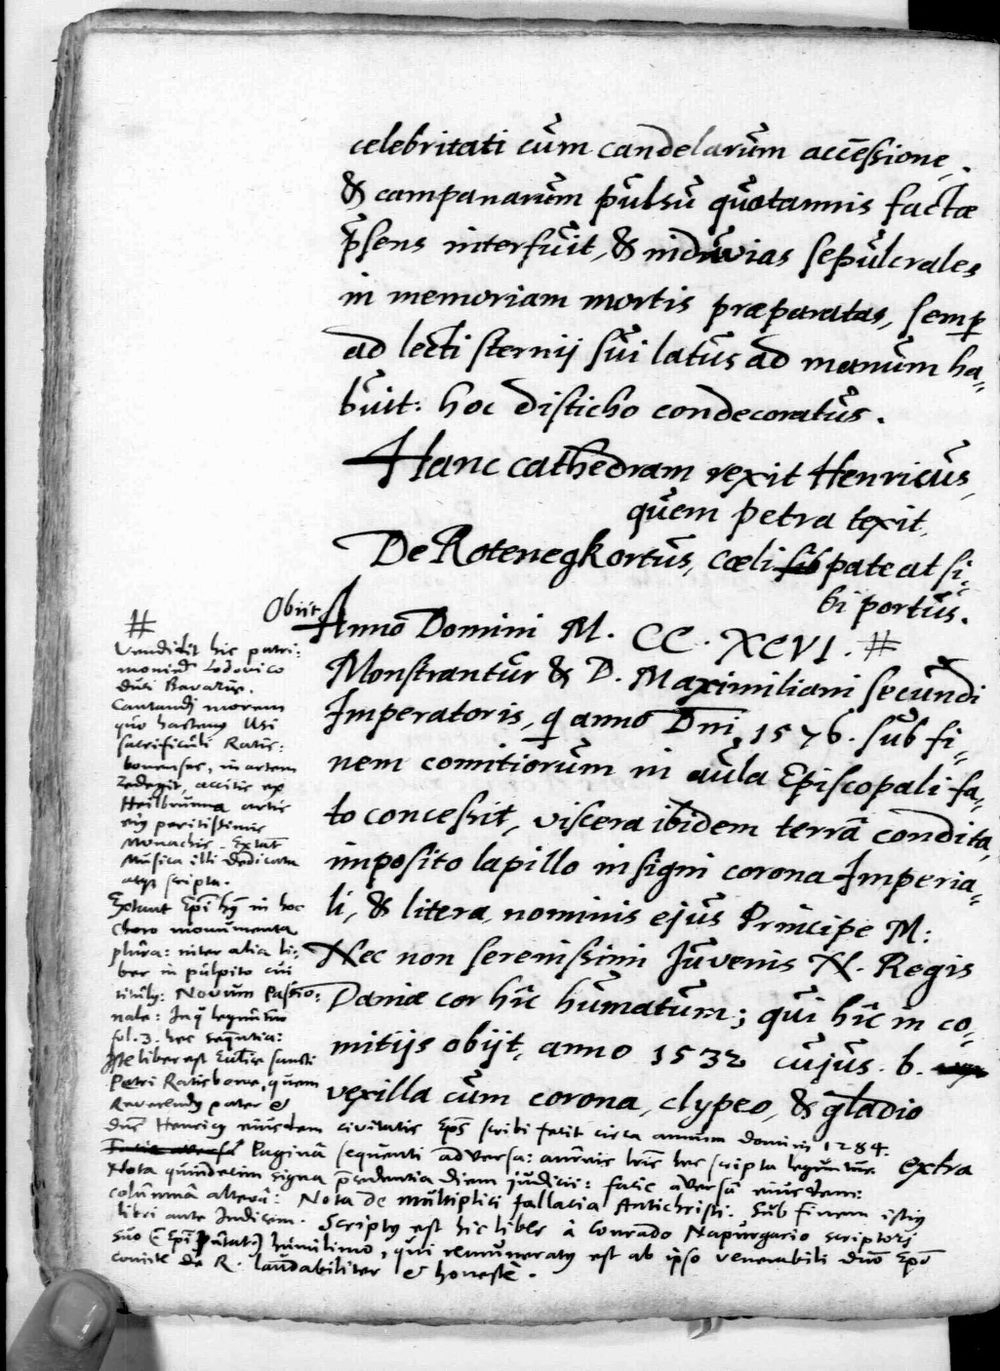 celebritati cum candelarum accessione,
& campanarum pulsu quotannis factae
p̄sens interfuit, & induvias sepulcrales
in memoriam mortis praeparatas, semp
ad lecti sternij sui latus ad manum ha=
buit: hoc disticho condecoratus.
Hanc cathedram rexit Henricus,
quem petra texit,
De Rotenegk ortus, coeli pateat si=
bi portus.
Obiit Anno Domini M. CC. XCVI. #
Monstrantur & D. Maximiliani secundi
Imperatoris, q anno Dni 1576. sub fi=
nem comitiorum in aula Episcopali fa=
to concessit, viscera ibidem terrā condita,
imposito lapillo insigni corona Imperia=
li, & litera nominis ejus Principe M:
Nec non serenissimi Juvenis N. Regis
Daniae cor hîc humatum; qui hîc in co=
mitijs obijt, anno 1532 cujus. b.
vexilla cum corona, clypeo, & gladio
extra
#
Vendidit hic patri:
moniū Lodovico
duci Bavariae.
Cantandi morem
quo hactenus usi
sacrificuli Ratis:
bonenses, in artem
redegit, accitis ex
Heilbrunna artis
eius peritissimis
Monachis. Extāt
Musica illi dedicata
atq scripta.
Extant Epī hui in hoc
choro monumenta
plura: inter alia li:
ber in pulpito cui
titulus: Novum Passio:
nale: In q leguntur
fol. 3. hec sequentia:
Iste liber est Ecclīe sancti
Petri Ratisbone, quem
Reverendus pater &
dns Henricus eiusdem civitatis Epūs scribi fecit circa annum domini 1284.
Paginā sequenti adversa: aureis līris hec scripta leguntur.
Nota quindecim signa p̄cedentia diem judicii: facie aversā eiusdem:
columnā alterā: Nota de multiplici fallacia Antichristi. Sub finem istius
libri ante Indicem. Scriptus est hic liber à Conrado Napurgario scriptori
suo (Epī putat) humilimo, qui remuneratus est ab ipso venerabili dnō Epō
comite de R. laudabiliter & honestè.